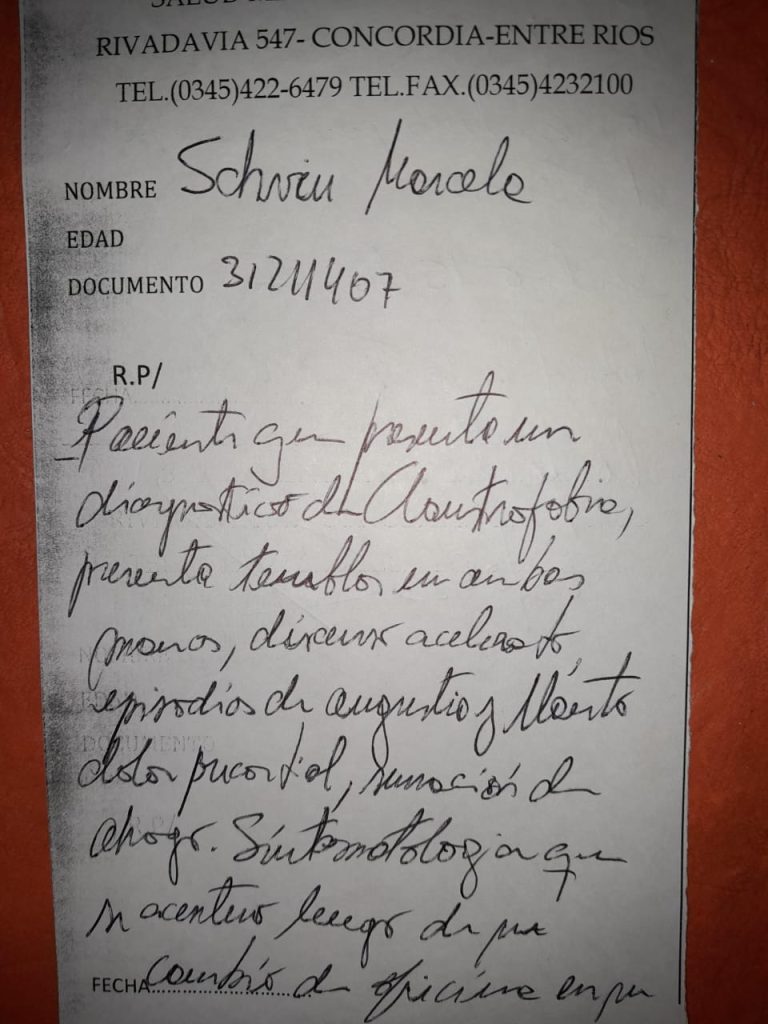 SALUD
RIVADAVIA 547- CONCORDIA-ENTRE RIOS
TEL.(0345)422-6479 TEL.FAX.(0345)4232100
NOMBRE Marcela
EDAD
DOCUMENTO 31211407
R.P/
Paciente que presenta un
diagnostico de Claustrofobia,
presenta temblor en ambas
manos, discurso acelerado,
episodios de angustia y llanto
dolor precordial, sensación de
ahogo. Sintomatologia que
se acentuo luego de su
FECHA cambio de oficina en su